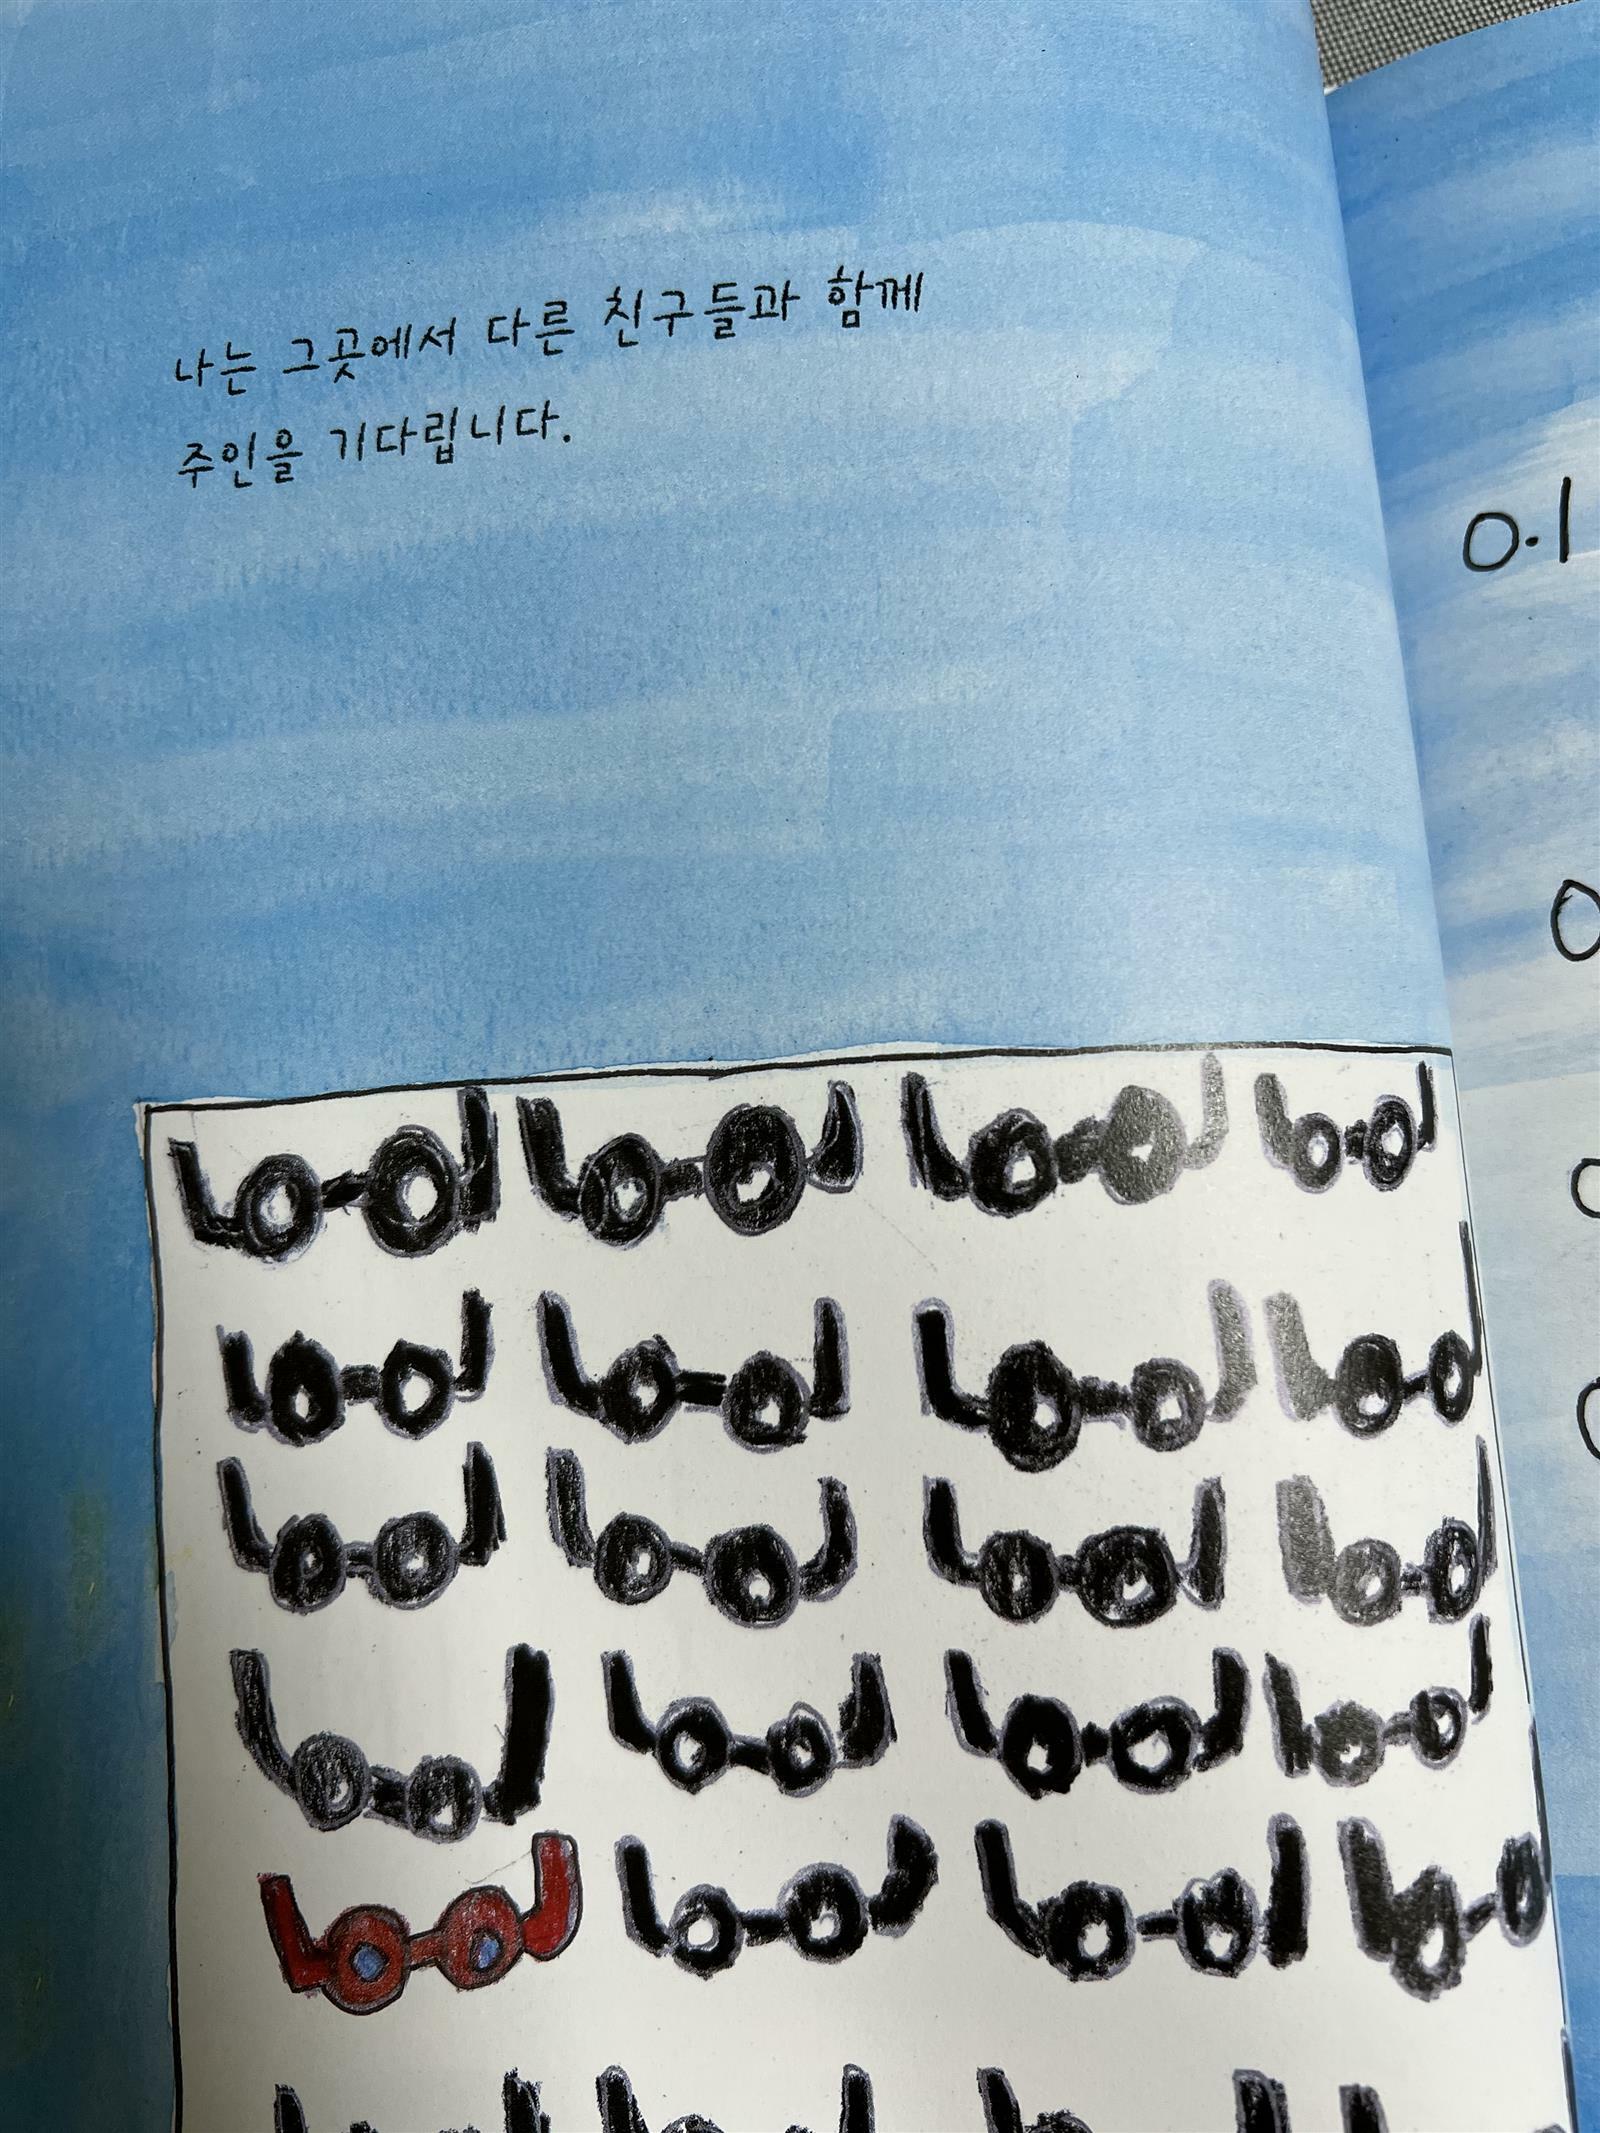 나는 그곳에서 다른 친구들과 함께
주인을 기다립니다.
0.1